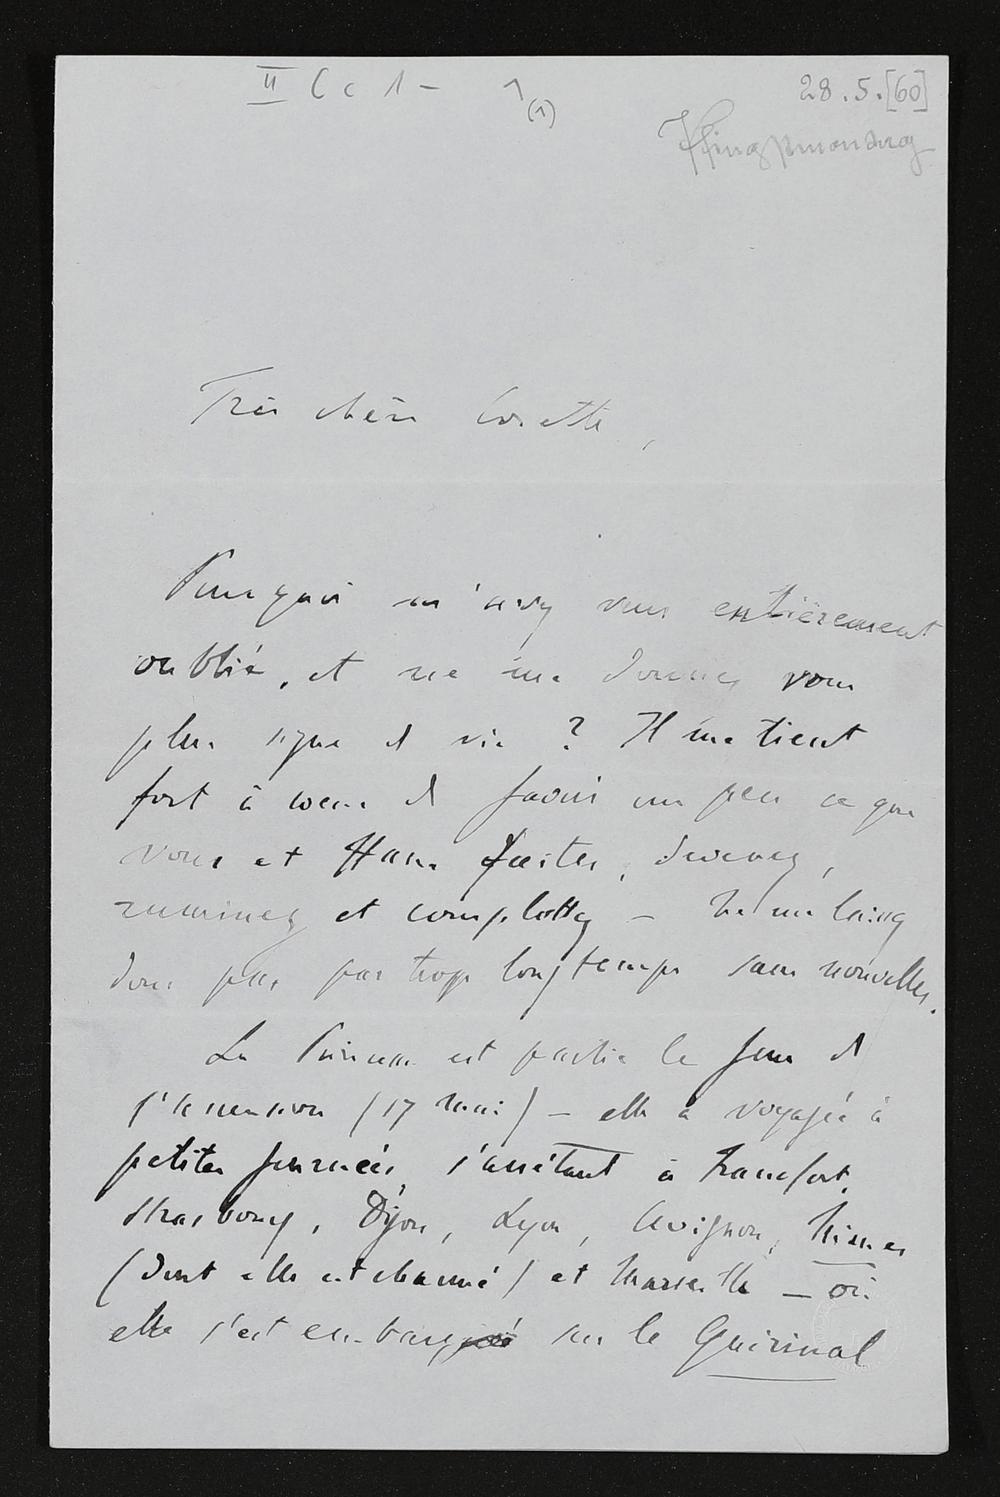 II C c 1 - 1
(1)
28.5.[60]
Pfingstmontag
Très chère Cosette,
Pourquoi m'avez vous entièrement
oublié, et ne me donnez vous
plus signe d vie ? Il me tient
fort à coeur d savoir un peu ce que
vous et Hans faites, devenez,
ruminez et complottez – Ne me laissez
donc pas par trop longtemps sans nouvelles.
La Princesse est partie le jour d
l'Ascension (17 Mai) – elle a voyagé à
petites journées, s'arrêtant à Francfort,
Strasbourg, Dijon, Lyon, Avignon, Nismes
(dont elle est charmée) et Marseille – où
elle s'est embarquée sur le Quirinal